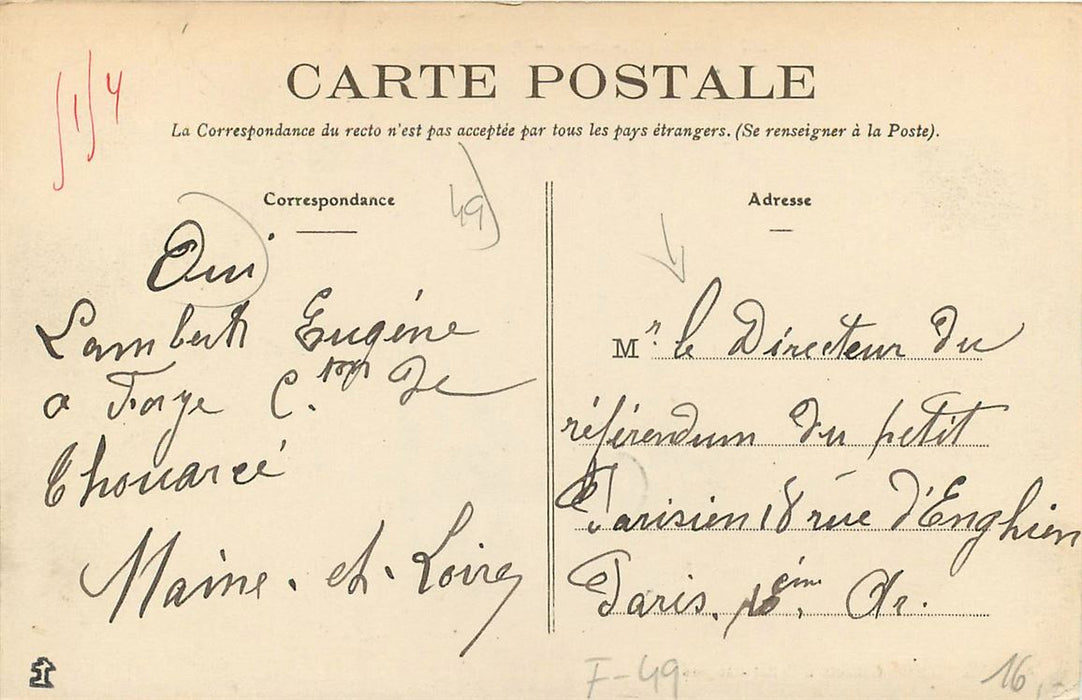 CARTE POSTALE
La Correspondance du recto n'est pas acceptée par tous les pays étrangers. (Se renseigner à la Poste).
Correspondance
49
Oui
Lambert Eugène
a Faye C.on de
Thouarcé
Maine-et-Loire
Adresse
Mr. le Directeur du
référendum du petit
Parisien 18 rue d'Enghien
Paris. 10èm. Ar.
F-49
16